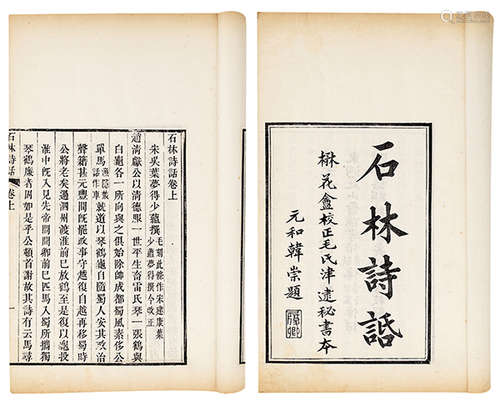 石林詩話
楙花盦校正毛氏津逮秘書本
元和韓崇題
石林詩話卷上
宋吳葉夢得少蘊撰 毛刻此條作宋建康葉少蘊夢得撰今改正
趙清獻公以清德服一世平生畜雷氏琴一張鶴與
白龜各一所向與之俱始除帥成都蜀風素侈公
單馬漁隱叢話作車就道以琴鶴龜自隨蜀人安其政治
聲籍甚元豐間既罷政事守越復自越再移蜀時
公將老矣過泗州渡淮前已放鶴至是復以龜投
淮中既入見先帝問聞卿前已匹馬入蜀所攜獨
琴鶴廉者固如是乎公頓首謝故其詩有云馬尋
石林詩話 卷上